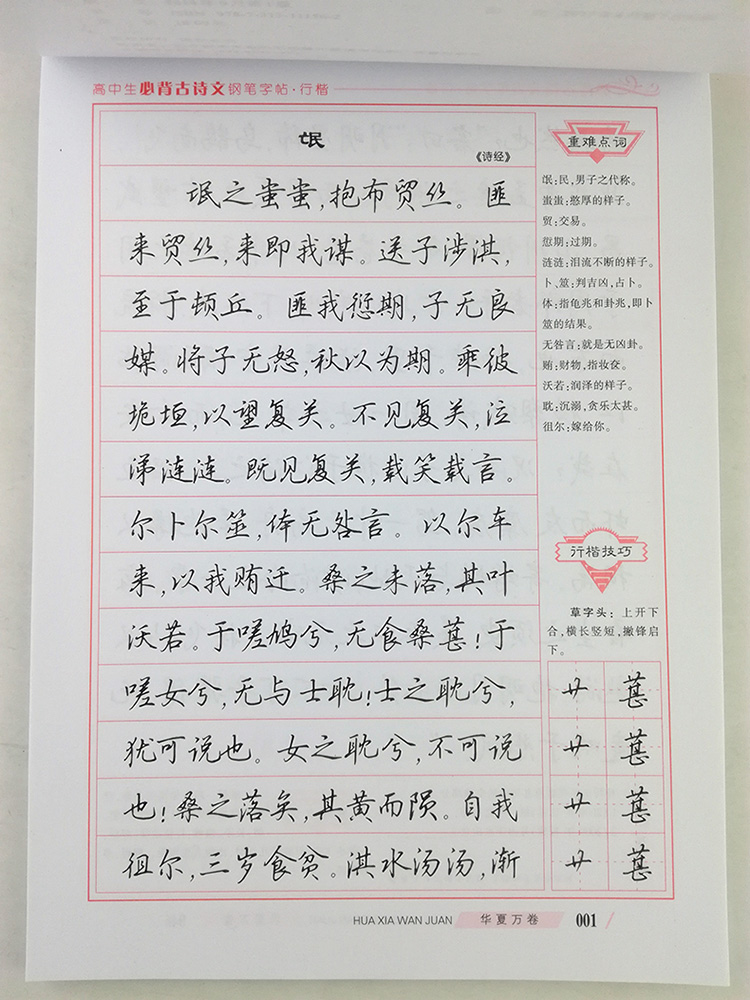 高中生必背古诗文钢笔字帖·行楷
氓
《诗经》
氓之蚩蚩，抱布贸丝。匪
来贸丝，来即我谋。送子涉淇，
至于顿丘。匪我愆期，子无良
媒。将子无怒，秋以为期。乘彼
垝垣，以望复关。不见复关，泣
涕涟涟。既见复关，载笑载言。
尔卜尔筮，体无咎言。以尔车
来，以我贿迁。桑之未落，其叶
沃若。于嗟鸠兮，无食桑葚！于
嗟女兮，无与士耽！士之耽兮，
犹可说也。女之耽兮，不可说
也！桑之落矣，其黄而陨。自我
徂尔，三岁食贫。淇水汤汤，渐
重难点词
氓：民，男子之代称。
蚩蚩：憨厚的样子。
贸：交易。
愆期：过期。
涟涟：泪流不断的样子。
卜、筮：判吉凶，占卜。
体：指龟兆和卦兆，即卜
筮的结果。
无咎言：就是无凶卦。
贿：财物，指妆奁。
沃若：润泽的样子。
耽：沉溺，贪乐太甚。
徂尔：嫁给你。
行楷技巧
草字头：上开下
合，横长竖短，撇锋启
下。
艹 葚
艹 葚
艹 葚
艹 葚
HUA XIA WAN JUAN 华夏万卷 001